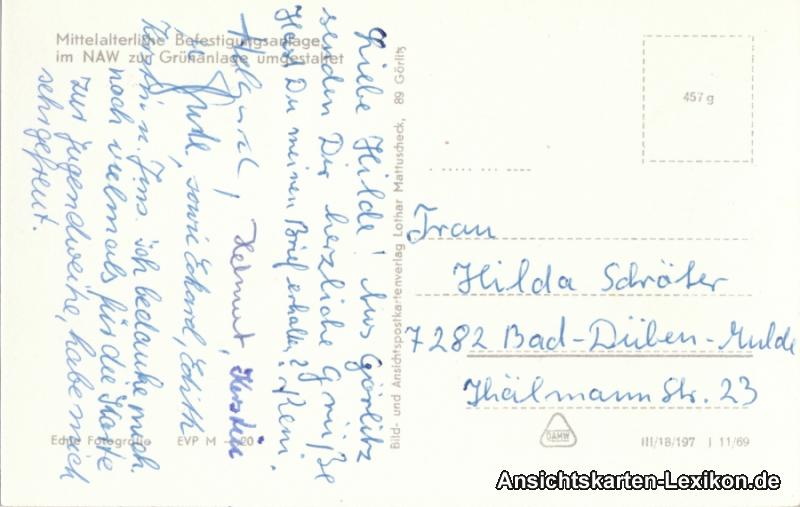 Mittelalterliche Befestigungsanlage,
im NAW zur Grünanlage umgestaltet
Liebe Hilde! Aus Görlitz
senden Dir herzliche Grüße
Hast Du meinen Brief erhalten?
Helmut,
sowie Eckard, Edith
u. Jens. ich bedanke mich
noch vielmals für die Karte
zur Jugendweihe, habe mich
sehr gefreut.
Echte Fotografie EVP M —.20
Bild- und Ansichtspostkartenverlag Lothar Mattuscheck, 89 Görlitz
457 g
Frau
Hilda Schröter
7282 Bad-Düben-Mulde
Thälmann Str. 23
DAMW
III/18/197 I 11/69
Ansichtskarten-Lexikon.de